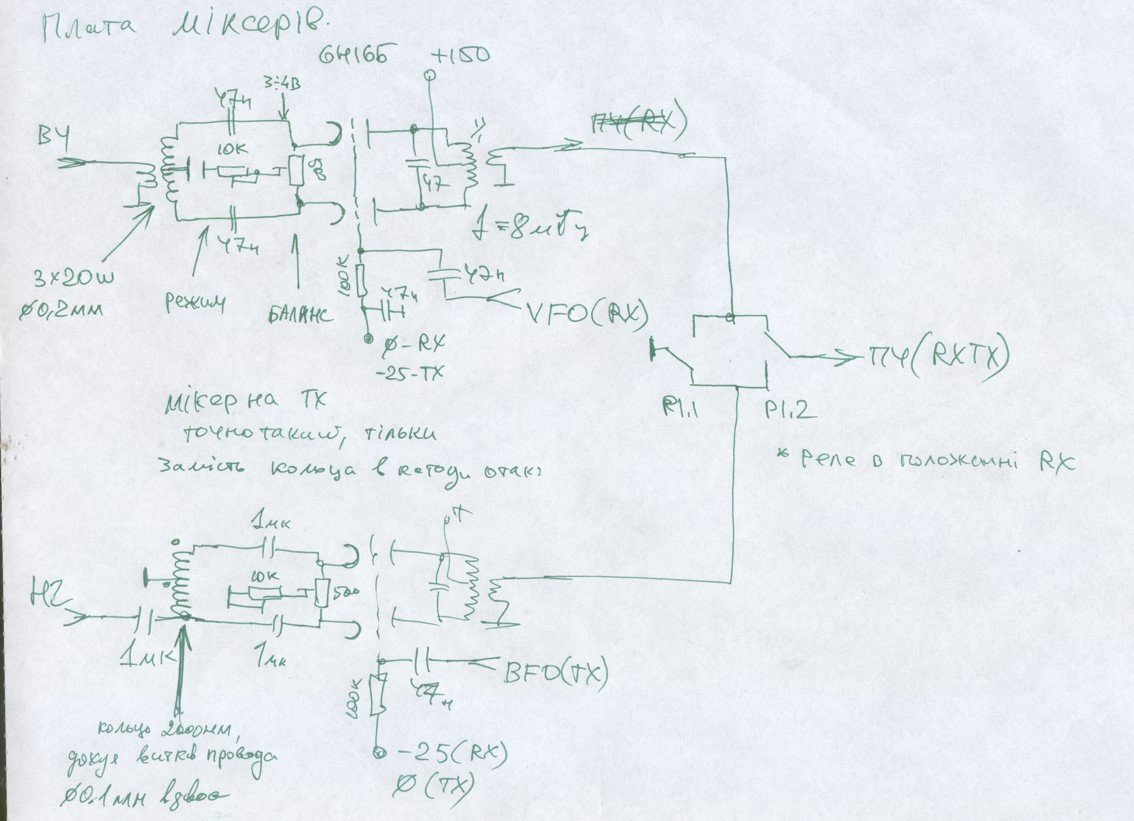 Плата міксерів.
6Н16Б
+150
3÷4В
47н
ВЧ
10К
500
47
ПЧ(RX)
f=8мГц
47н
3×20w
Ø0,2мм
Режим
БАЛАНС
100К
47н
47н
VFO(RX)
Ø-RX
-25-TX
ПЧ(RXTX)
Р1.1
Р1.2
* Реле в положенні RX
мікер на TX
точно такий, тільки
Замість кольца в катоди отак:
1мк
+
10К
500
НЧ
1мк
1мк
BFO(TX)
47н
100К
кольцо 2000нм,
витків провода
Ø0.1мм вдвоє
-25(RX)
Ø(TX)